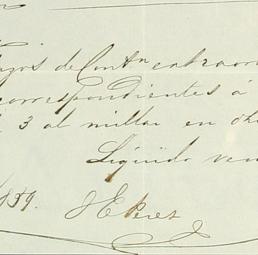 de Contn extraor
correspondientes á
3 al millar en
Líquido
1859.
J E Perez